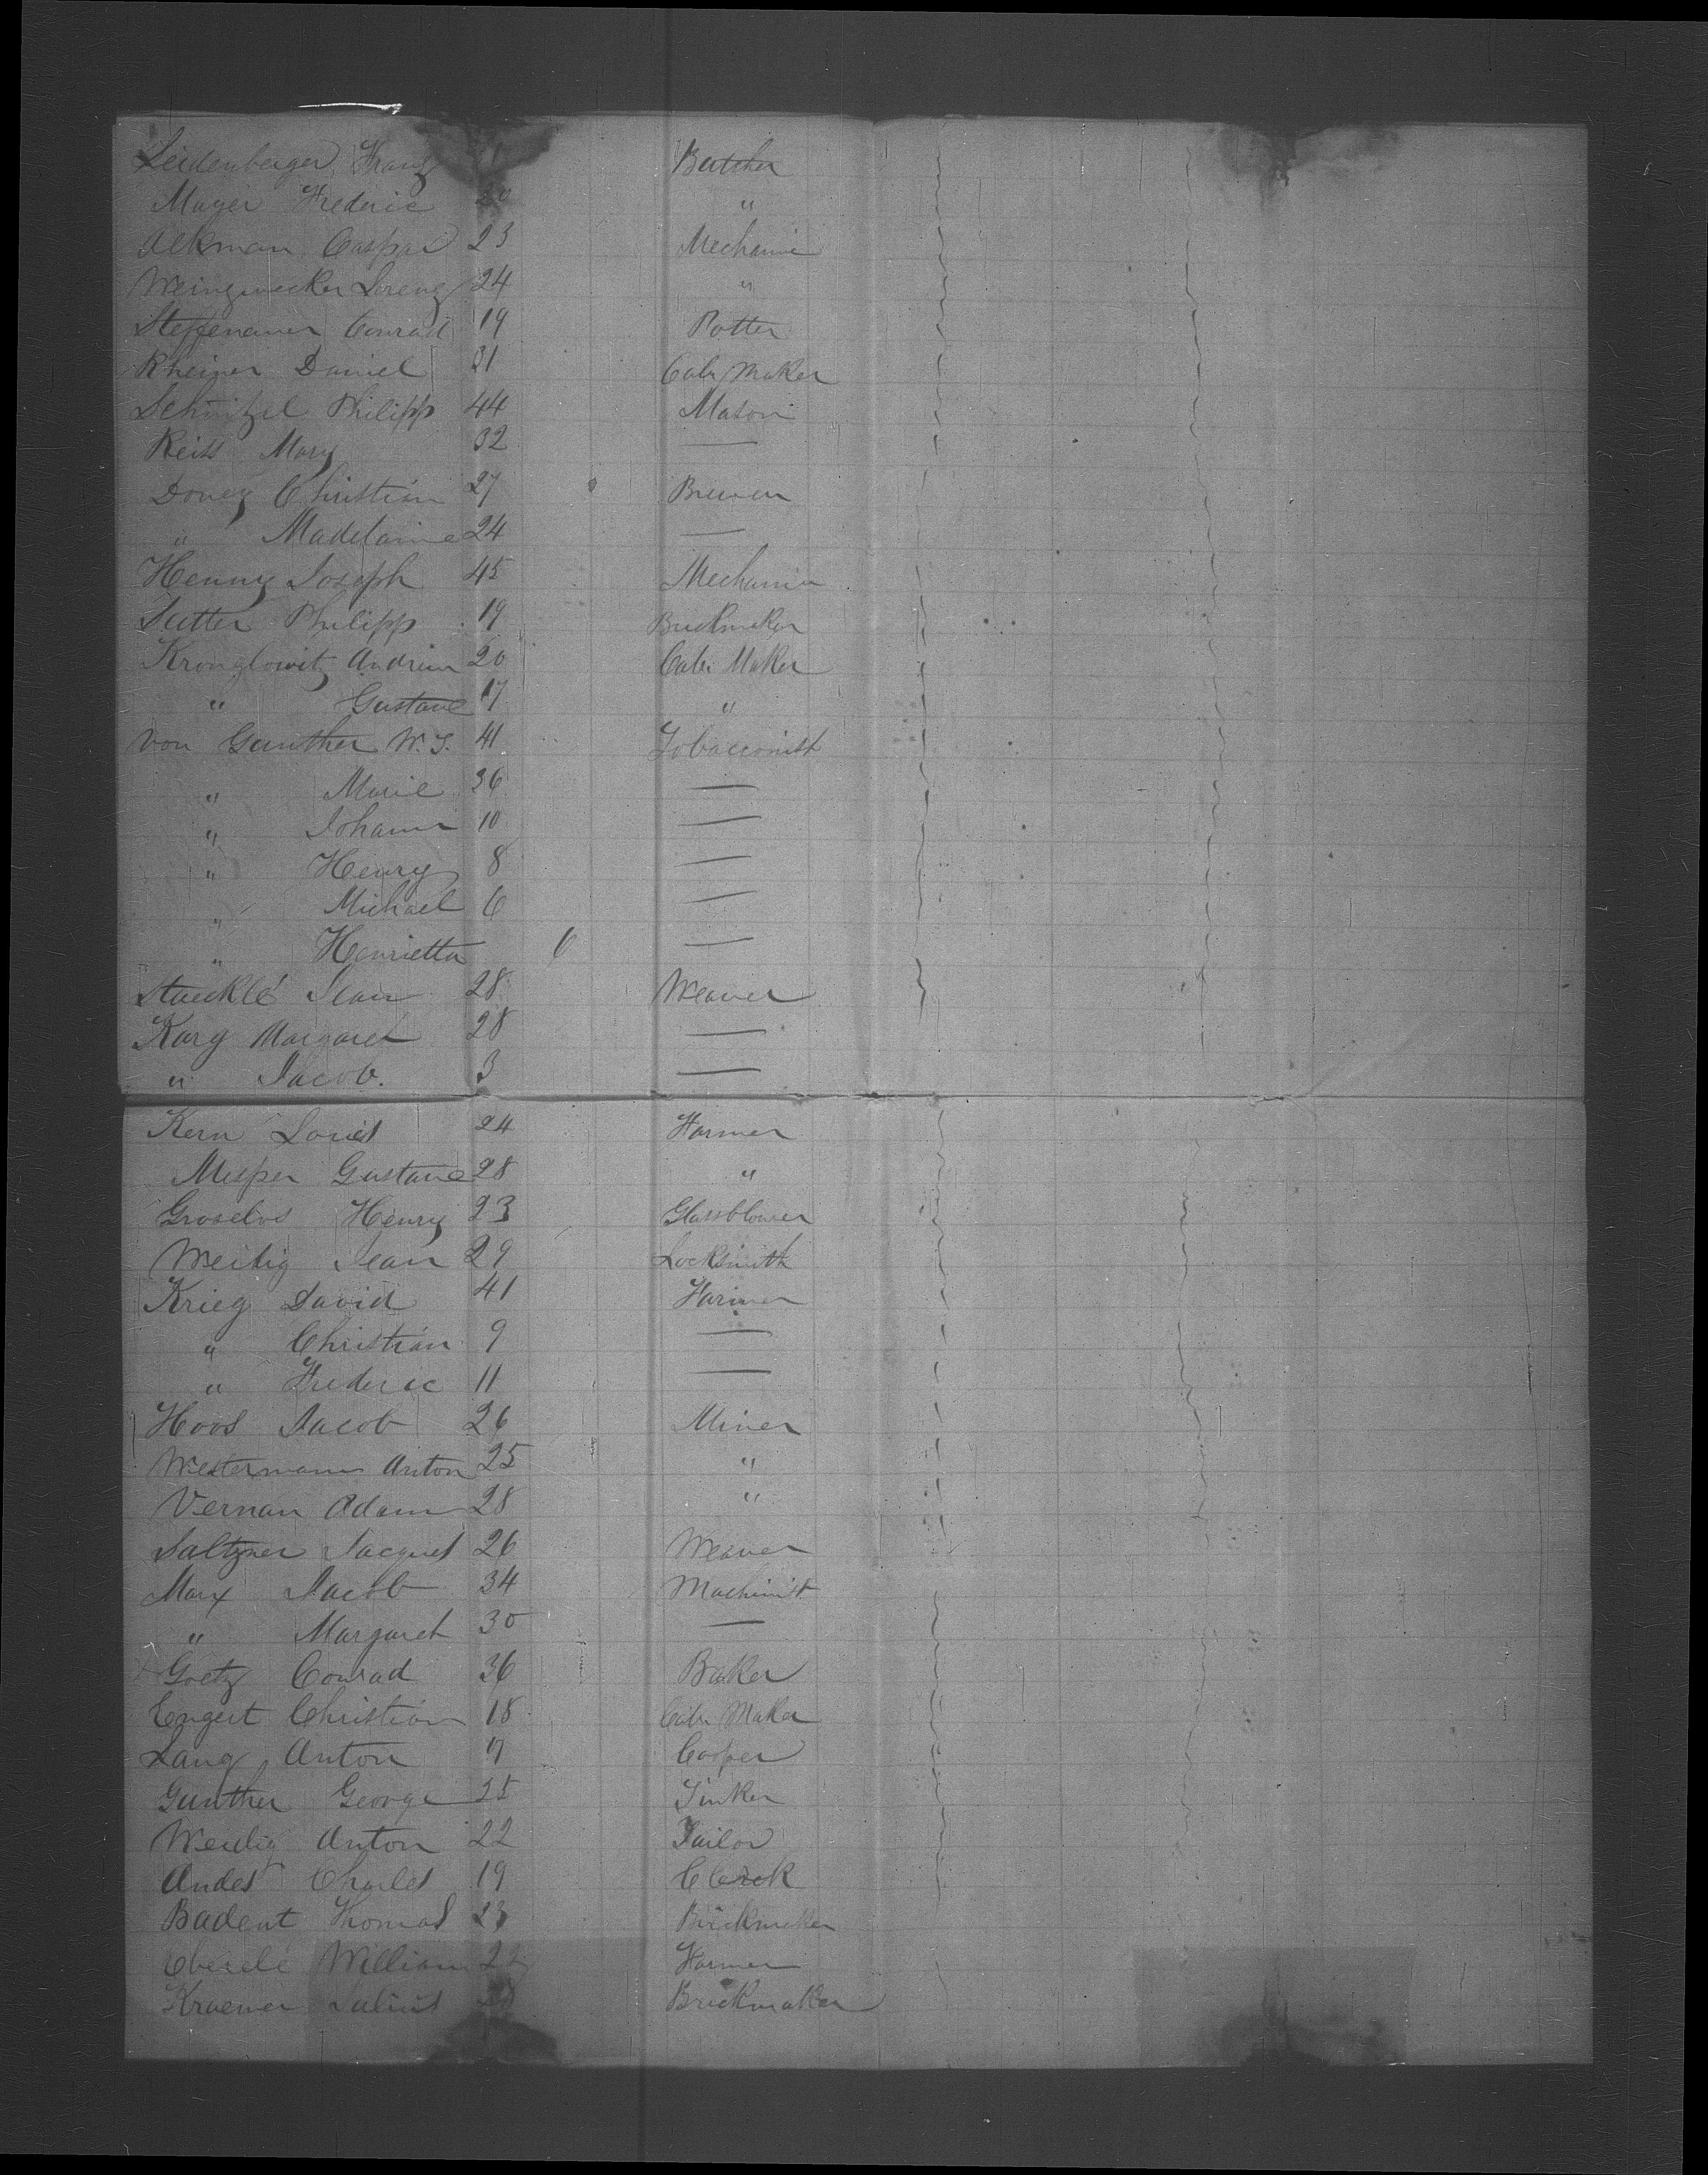 Leidenberger Franz Butcher
Mayer Frederic 20 "
Aekman Caspar 23 Mechanic
Weingwecker Lorenz 24 "
Steffenauer Conrad 19 Potter
Rheiner Daniel 31 Cab. Maker
Schnitzel Philipp 44 Mason
Reiss Mary 32 —
Douez Christian 27 Brewer
" Madelaine 24 —
Henny Joseph 45 Mechanic
Sutter Philipp 19 Brickmaker
Kronglowitz Andrien 20 Cab. Maker
" Gustave 17 "
von Gunther W. J. 41 Tobacconist
" Marie 36 —
" Johann 10 —
" Henry 8 —
" Michael 6 —
" Henrietta 6 —
Staecklé Jean 28 Weaver
Karg Margaret 28 —
" Jacob. 3 —
Kern Louis 24 Farmer
Mesper Gustave 28 "
Groselos Henry 23 Glassblower
Weidig Jean 29 Locksmith
Krieg David 41 Farmer
" Christian 9 —
" Frederic 11 —
Hoos Jacob 26 Miner
Westermann Anton 25 "
Vernan Adam 28 "
Saltzner Jacques 26 Weaver
Marx Jacob 34 Machinist
" Margaret 30 —
Goetz Conrad 36 Baker
Engert Christian 18 Cab. Maker
Lang Anton 17 Cooper
Gunther George 25 Tinker
Weidig Anton 22 Tailor
Andes Charles 19 Clerk
Badent Thomas 23 Brickmaker
Eberlé William Farmer
Kraemer Julius Brickmaker